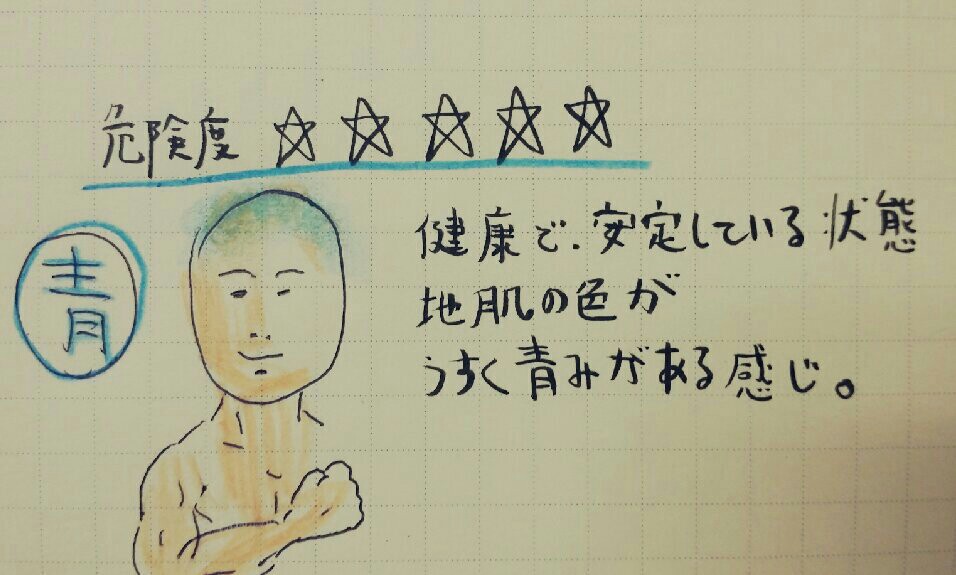 危険度 ☆☆☆☆☆
青
健康で、安定している状態
地肌の色が
うすく青みがある感じ。